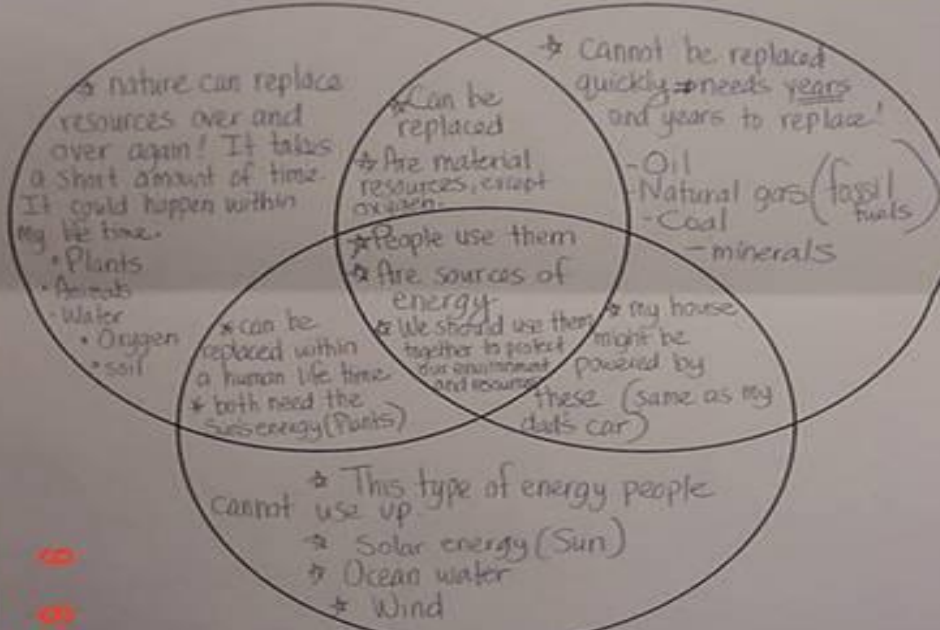 ☆ nature can replace
resources over and
over again! It takes
a short amount of time.
It could happen within
my life time.
• Plants
• Animals
• Water
• Oxygen
• Soil
☆ Can be
replaced
☆ Are material
resources, except
oxygen.
☆ cannot be replaced
quickly → needs years
and years to replace!
- Oil
- Natural gas (fossil
fuels)
- Coal
- minerals
☆ People use them
☆ Are sources of
energy
☆ We should use them
together to protect
our environment
and resources
* can be
replaced within
a human life time
* both need the
sun's energy (Plants)
☆ my house
might be
powered by
these (same as my
dad's car)
☆ This type of energy people
cannot use up
☆ Solar energy (Sun)
☆ Ocean water
☆ Wind